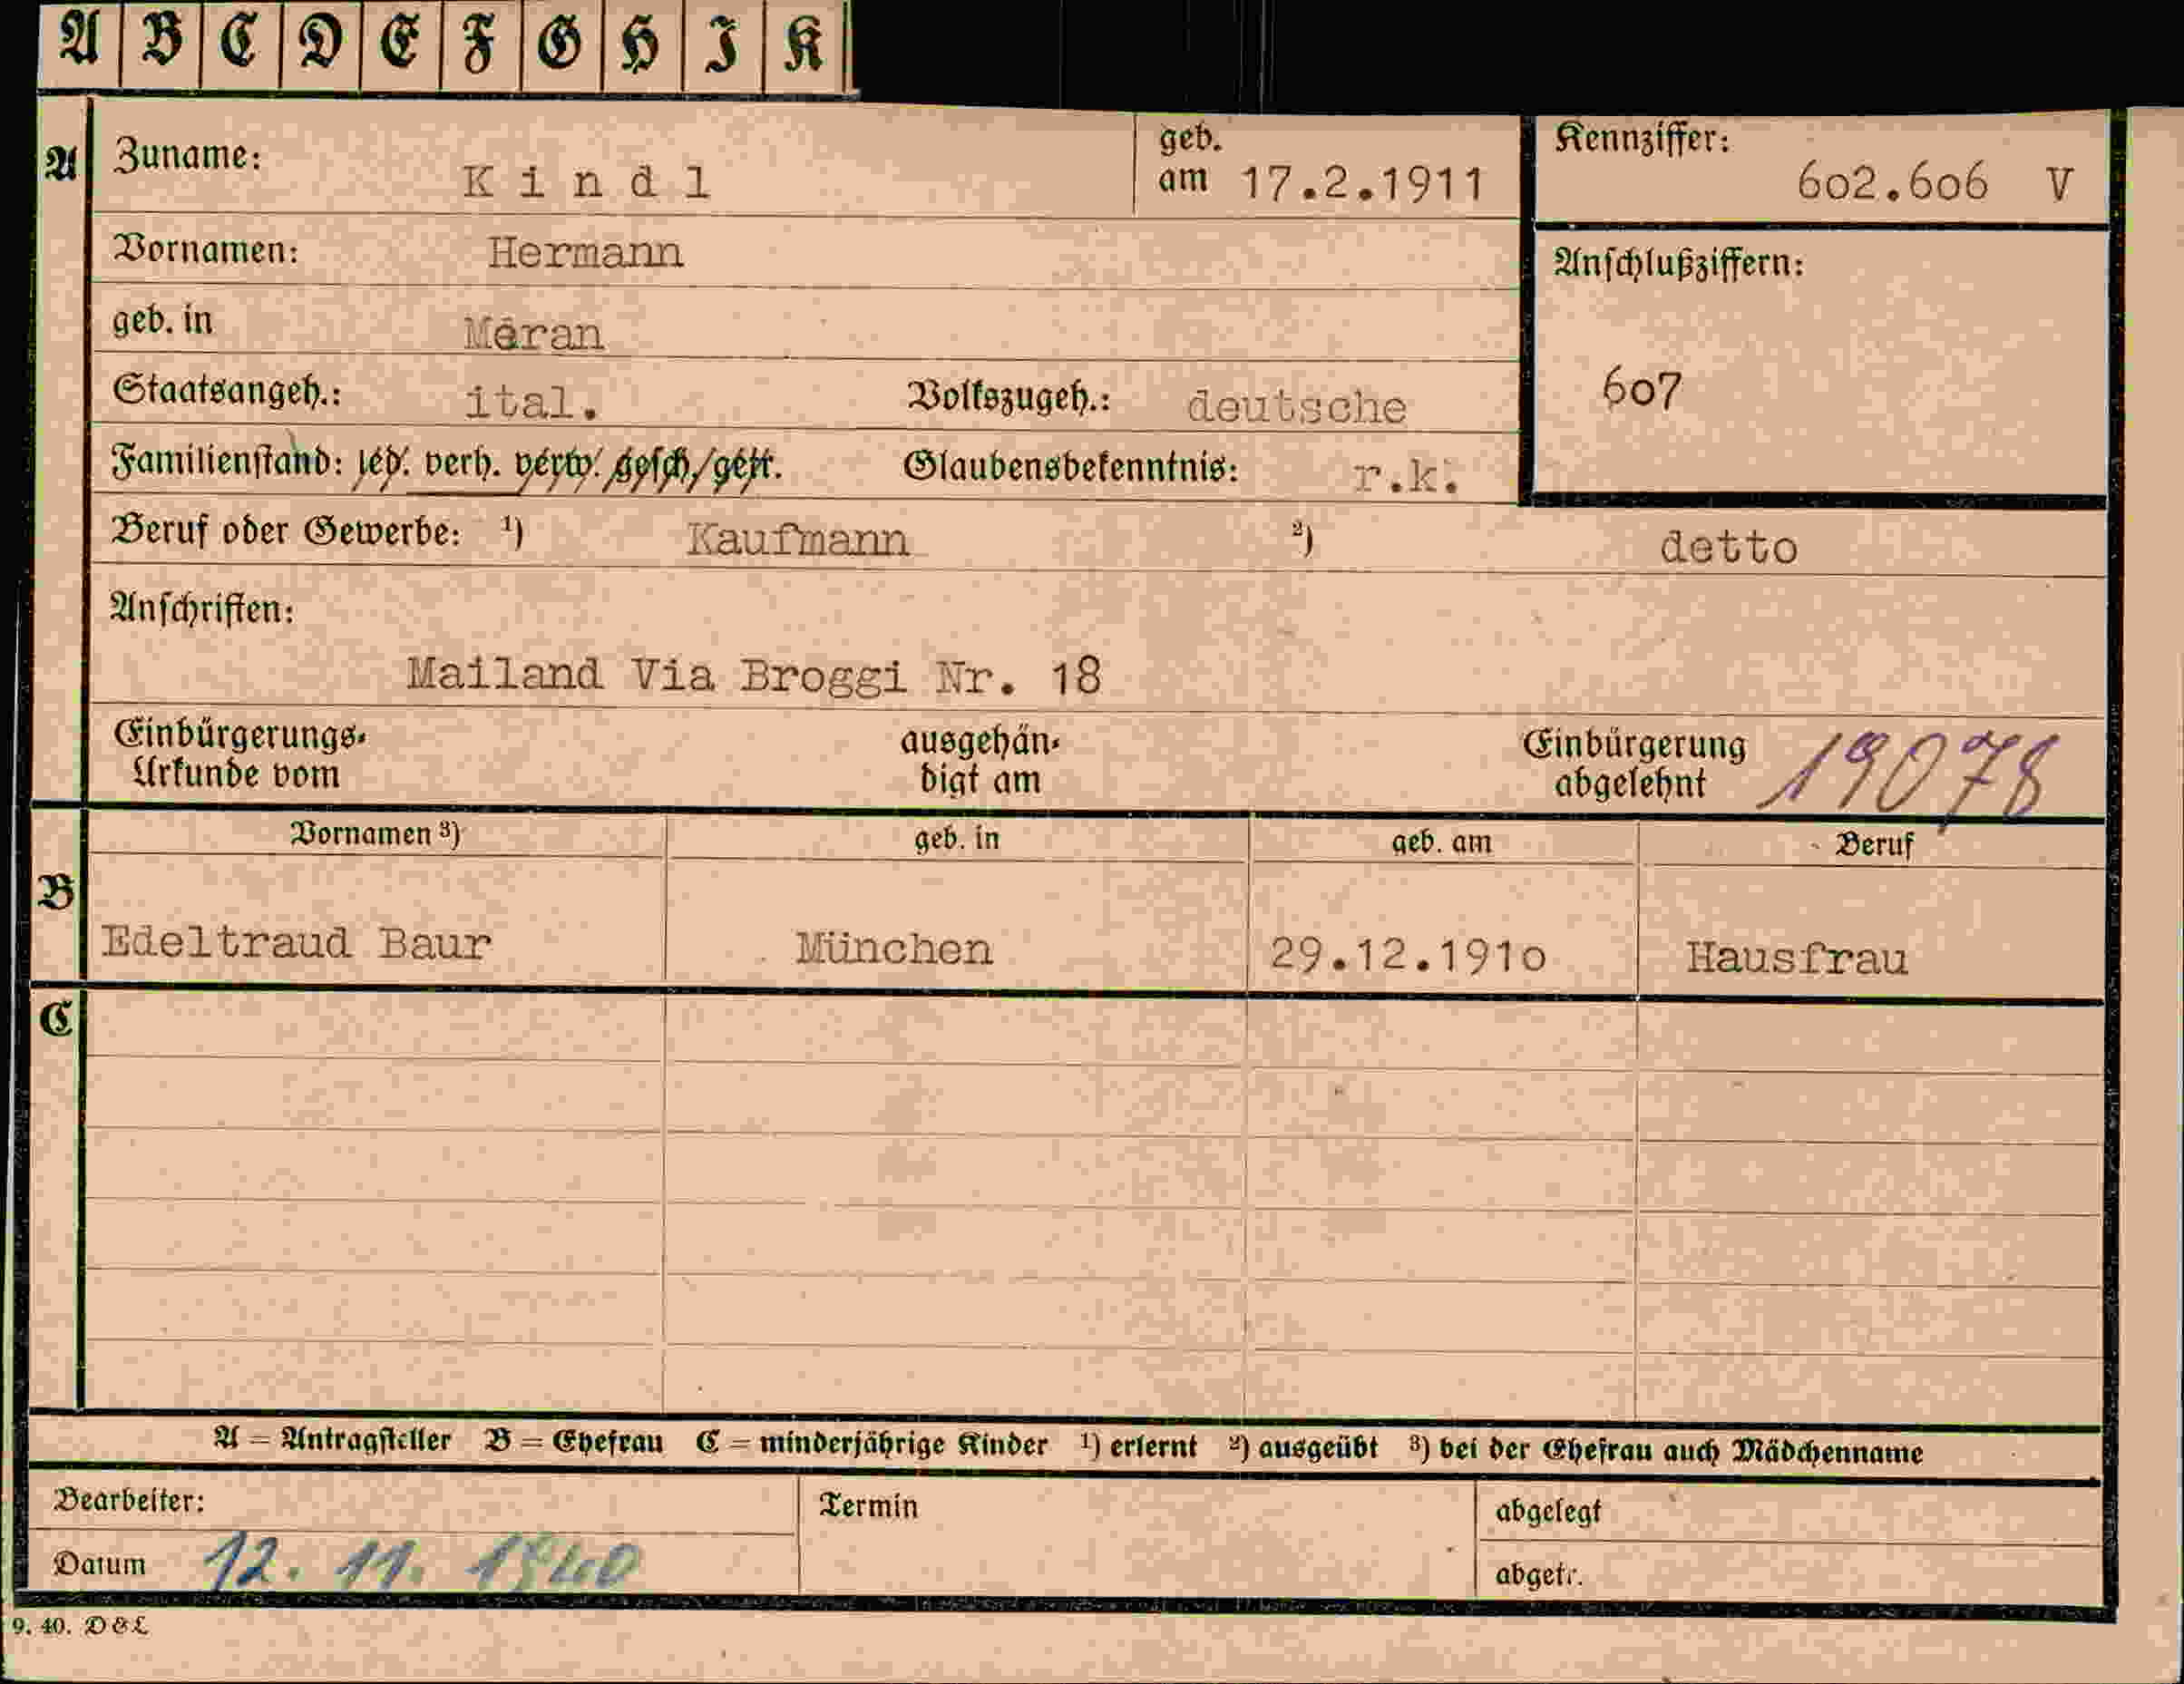 A B C D E F G H I K
A Zuname: Kindl geb. am 17.2.1911 Kennziffer: 602.606 V
Vornamen: Hermann Anschlußziffern:
geb. in Meran
607
Staatsangeh.: ital. Volkszugeh.: deutsche
Familienstand: led. verh. verw. gesch./getr. Glaubensbekenntnis: r.k.
Beruf oder Gewerbe: ¹) Kaufmann ²) detto
Anschriften:
Mailand Via Broggi Nr. 18
Einbürgerungs- ausgehän- Einbürgerung 19078
Urkunde vom digt am abgelehnt
Vornamen ³) geb. in geb. am Beruf
B
Edeltraud Baur München 29.12.1910 Hausfrau
C
A = Antragsteller B = Ehefrau C = minderjährige Kinder ¹) erlernt ²) ausgeübt ³) bei der Ehefrau auch Mädchenname
Bearbeiter: Termin abgelegt
Datum 12. 11. 1940 abgetr.
9. 40. D & L